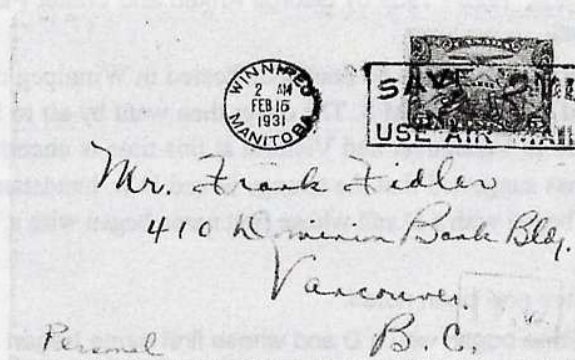 WINNIPEG
2 AM
FEB 16
1931
MANITOBA
SAVE
USE AIR MAIL
Mr. Frank Fedler
410 Dominion Bank Bldg.
Vancouver.
B. C.
Personal